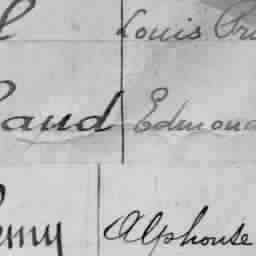 Louis
aud Edmond
emy Alphonse